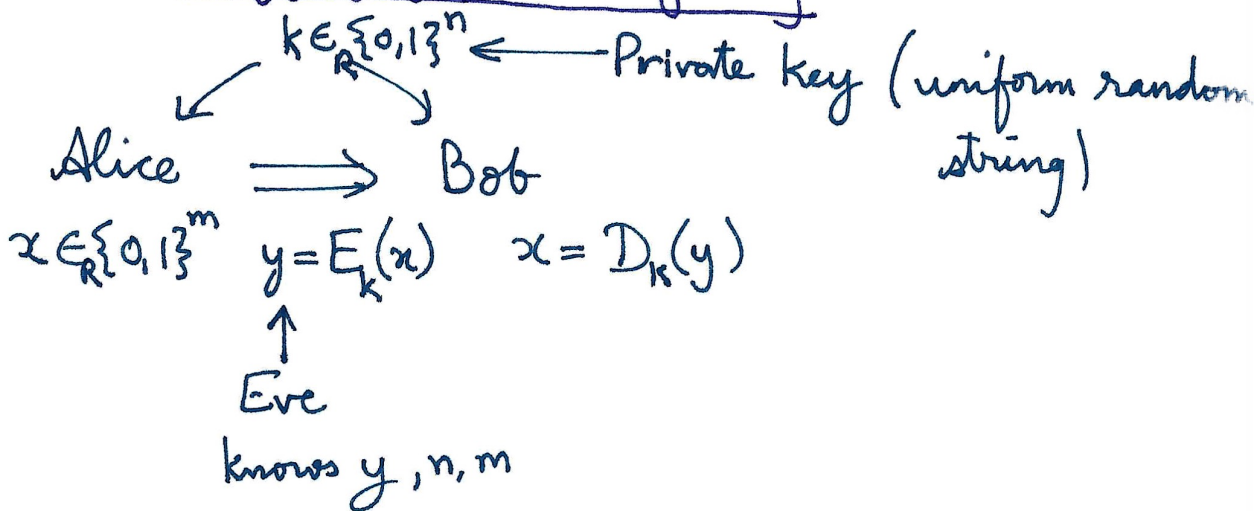 k ∈_R {0,1}^n ← Private key (uniform random
string)
Alice ⟹ Bob
x ∈_R {0,1}^m y = E_k(x) x = D_k(y)
↑
Eve
knows y, n, m